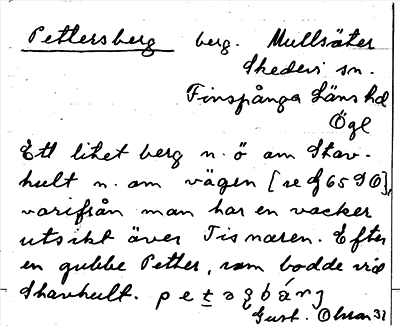 Pettersberg berg. Mullsäter
Skedevi sn.
Finspånga läns hd
Ögl
Ett litet berg n. ö om Skav-
hult n. om vägen [se 65 D O],
varifrån man har en vacker
utsikt över Tisnaren. Efter
en gubbe Petter, som bodde vid
Skavhult.
Gust. Olsson 31